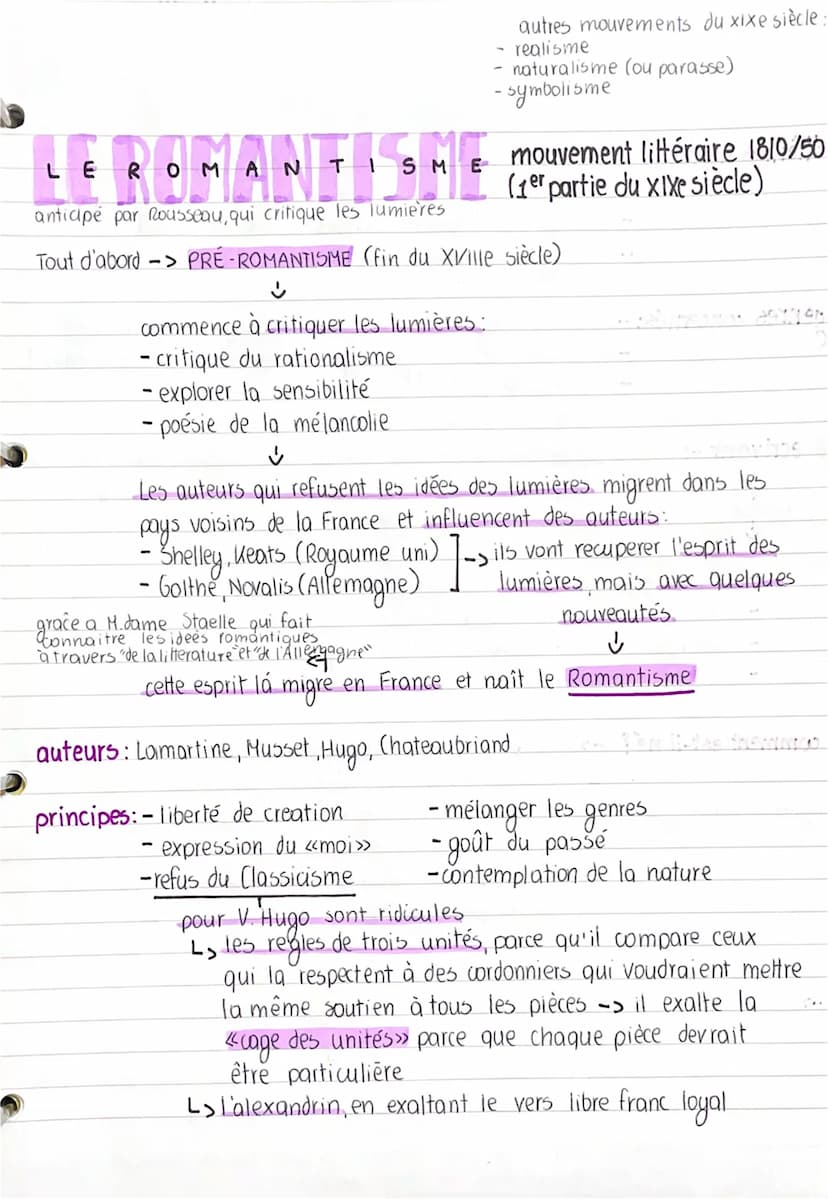 autres mouvements du XIXe siècle:
- realisme
- naturalisme (ou parasse)
- symbolisme
LE ROMANTISME
mouvement littéraire 1810/50
(1er partie du XIXe siècle)
anticipé par Rousseau, qui critique les lumières
Tout d'abord -> PRÉ-ROMANTISME (fin du XVIIIe siècle)
↓
commence à critiquer les lumières:
- critique du rationalisme
- explorer la sensibilité
- poésie de la mélancolie
↓
Les auteurs qui refusent les idées des lumières migrent dans les
pays voisins de la France et influencent des auteurs:
- Shelley, Keats (Royaume uni)
- Goithe, Novalis (Allemagne)
-> ils vont recuperer l'esprit des
lumières, mais avec quelques
nouveautés.
↓
grace a M.dame Staelle qui fait
connaitre les idées romantiques
a travers "de la litterature" et "de l'Allemagne"
cette esprit lá migre en France et naît le Romantisme
auteurs: Lamartine, Musset, Hugo, Chateaubriand
principes: - liberté de creation
- expression du «moi»
- refus du Classicisme
- mélanger les genres
- goût du passé
- contemplation de la nature
pour V. Hugo sont ridicules
↳ les regles de trois unités, parce qu'il compare ceux
qui la respectent à des cordonniers qui voudraient mettre
la même soutien à tous les pièces -> il exalte la
«cage des unités» parce que chaque pièce devrait
être particulière
↳ l'alexandrin, en exaltant le vers libre franc loyal